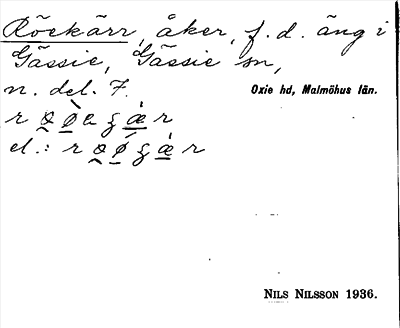 Röekärr, åker, f. d. äng i
Gässie, Gässie sn,
n. del. 7.
Oxie hd, Malmöhus län.
el.:
NILS NILSSON 1936.